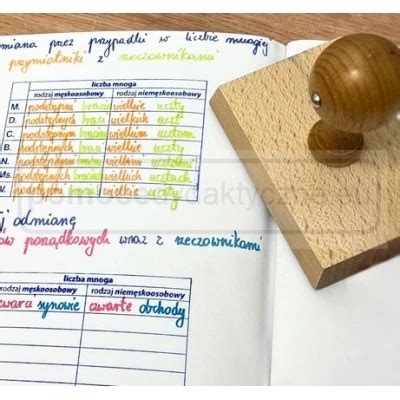 dmiana przez przypadki w liczbie mnogiej
przymiotniki z rzeczownikami
liczba mnoga
rodzaj męskoosobowy rodzaj niemęskoosobowy
M. podstępni bracia wielkie uczty
D. podstępnych braci wielkich uczt
C. podstępnym braciom wielkim ucztom
B. podstępnych braci wielkie uczty
N. wielkimi ucztami
Ms. podstępnych wielkich ucztach
W. podstępni bracia wielkie uczty
j odmianę
ów porządkowych wraz z rzeczownikami
liczba mnoga
rodzaj męskoosobowy rodzaj niemęskoosobowy
synowie czwarte obchody